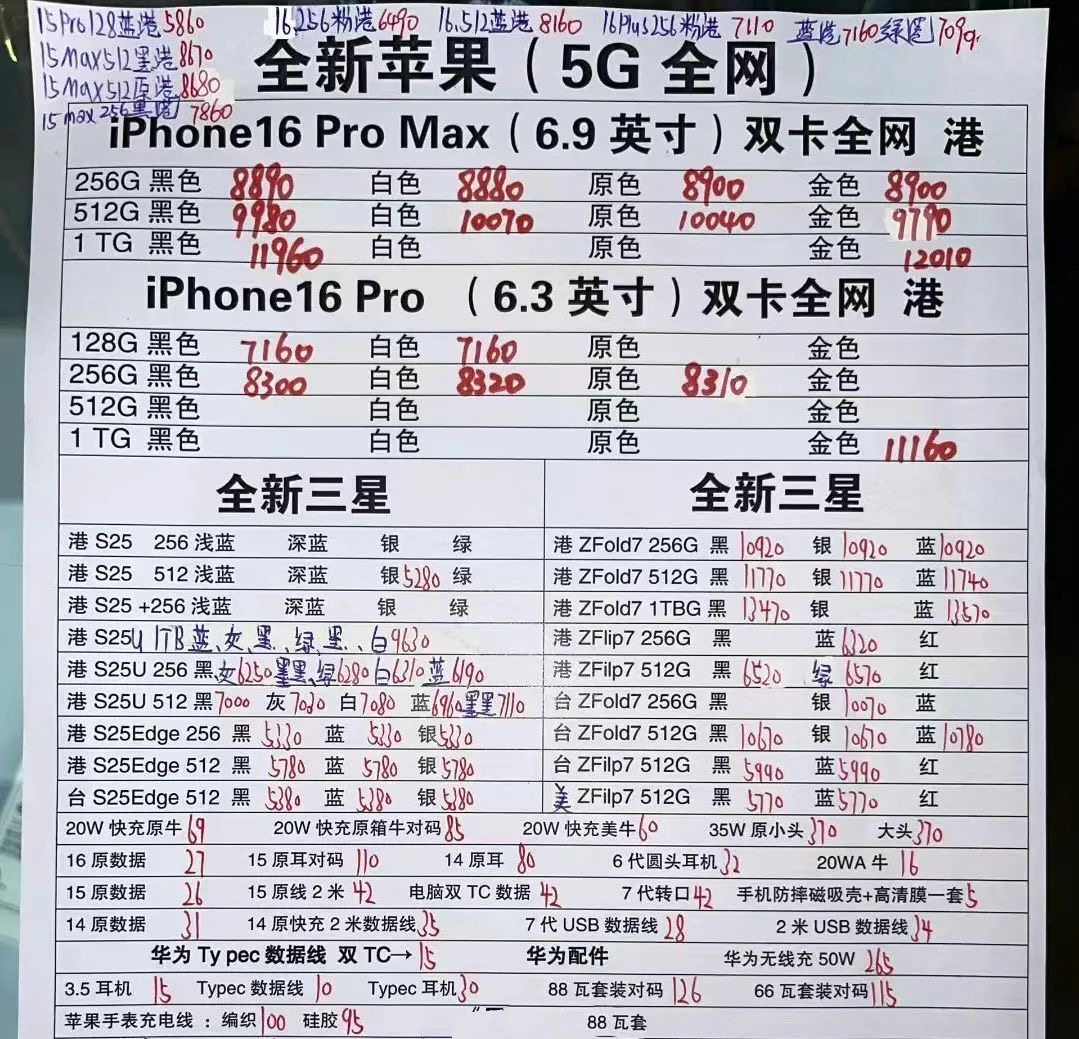 15Pro128蓝港5860 16.256粉港6490 16.512蓝港8160 16Plus256粉港7110 蓝港7160绿港7090
15Max512黑港8670
15Max512原港8680
15max256黑港7860
全新苹果（5G 全网）
iPhone16 Pro Max（6.9 英寸）双卡全网 港
256G 黑色 8890 白色 8880 原色 8900 金色 8900
512G 黑色 9980 白色 10070 原色 10040 金色 9790
1 TG 黑色 11960 白色 原色 金色 12010
iPhone16 Pro （6.3 英寸）双卡全网 港
128G 黑色 7160 白色 7160 原色 金色
256G 黑色 8300 白色 8320 原色 8310 金色
512G 黑色 白色 原色 金色
1 TG 黑色 白色 原色 金色 11160
全新三星
港 S25 256 浅蓝 深蓝 银 绿
港 S25 512 浅蓝 深蓝 银5280 绿
港 S25 +256 浅蓝 深蓝 银 绿
港 S25U 1TB 蓝、灰、黑、绿、黑、白9630
港 S25U 256 黑 灰6250 墨黑、绿6280 白6210 蓝6190
港 S25U 512 黑7000 灰 7020 白7080 蓝6960 墨黑7110
港 S25Edge 256 黑 5330 蓝 5330 银5330
港 S25Edge 512 黑 5780 蓝 5780 银5780
台 S25Edge 512 黑 5380 蓝 5380 银5380
全新三星
港 ZFold7 256G 黑 10920 银 10920 蓝10920
港 ZFold7 512G 黑 11770 银 11770 蓝 11740
港 ZFold7 1TBG 黑 13470 银 蓝 13570
港 ZFlip7 256G 黑 蓝 6320 红
港 ZFilp7 512G 黑 6520 绿 6570 红
台 ZFold7 256G 黑 银 10070 蓝
台 ZFold7 512G 黑 10670 银 10670 蓝10780
台 ZFilp7 512G 黑 5990 蓝5990 红
美 ZFilp7 512G 黑 5770 蓝5770 红
20W 快充原牛69 20W 快充原箱牛对码85 20W 快充美牛60 35W 原小头370 大头370
16 原数据 27 15 原耳对码 110 14 原耳 80 6 代圆头耳机32 20WA 牛 16
15 原数据 26 15 原线 2 米 42 电脑双 TC 数据 42 7 代转口42 手机防摔磁吸壳+高清膜一套5
14 原数据 31 14 原快充 2 米数据线35 7 代 USB 数据线 28 2 米 USB 数据线34
华为 Ty pec 数据线 双 TC→15 华为配件 华为无线充 50W 265
3.5 耳机 15 Typec 数据线 10 Typec 耳机30 88 瓦套装对码 126 66 瓦套装对码115
苹果手表充电线 : 编织100 硅胶95 88 瓦套